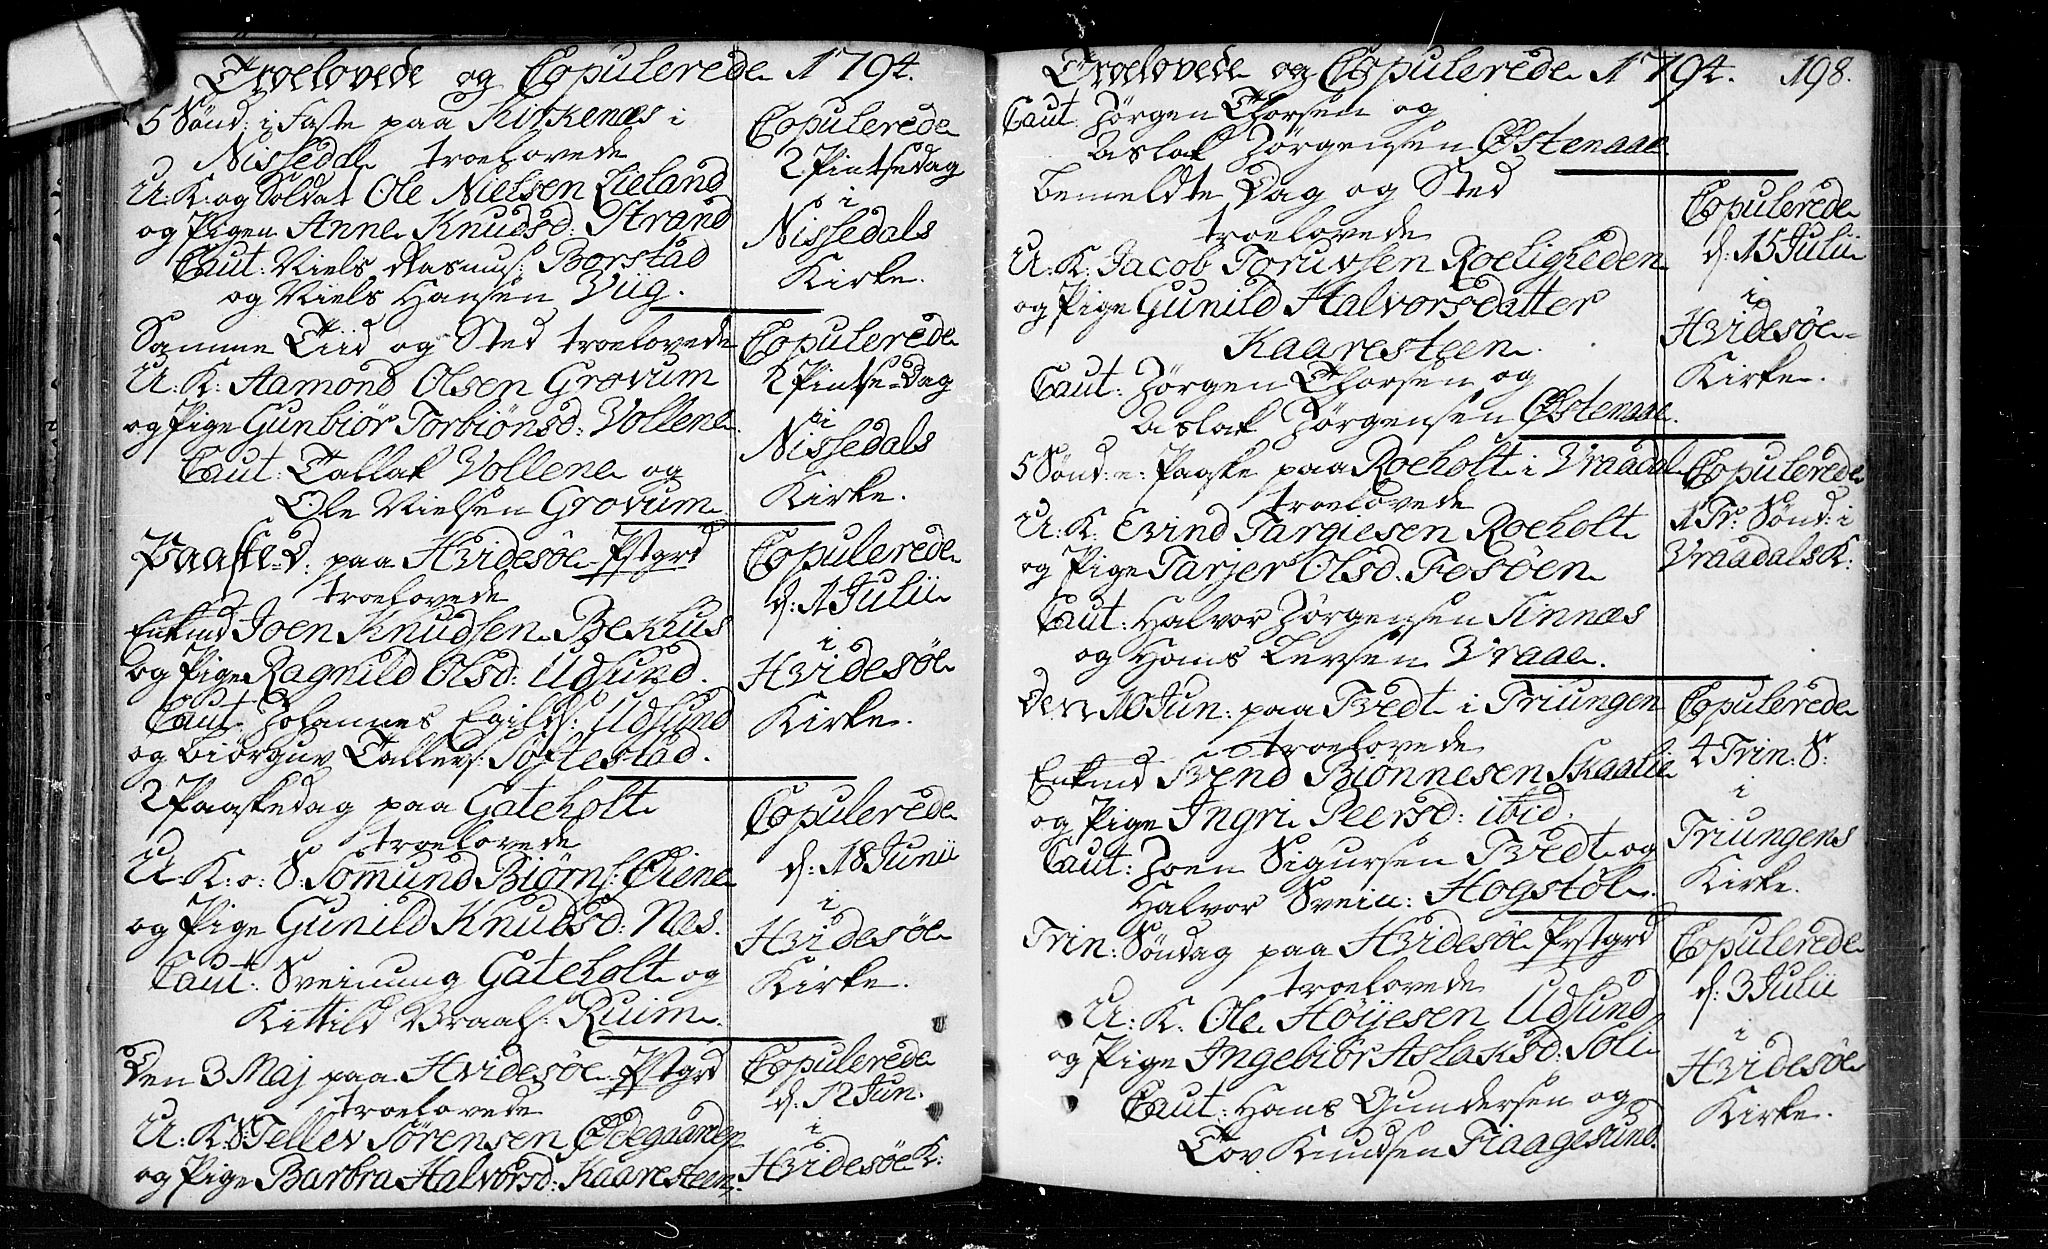 Troelovede og Copulerede 1794.
5 Sønd: i Faste paa Kirkenæs i
Nissedal troelovede
U: K: og Soldat Ole Nielsen Lieland
og Pigen Anne Knudsd: Strand
Caut: Niels Rasmus: Borstad
og Niels Hansen Viig.
Copulerede
2 Pintsedag
i
Nissedals
Kirke.
Samme Tiid og Sted troelovede
U: K: Aamond Olsen Grovum
og Pige Gunbiør Torbiönsd: Vollene
Caut: Tallak Vollene og
Ole Nielsen Grovum
Copulerede
2 Pintse-Dag
i
Nissedals
Kirke.
Paaske-D: paa Hvidesøe Pstgrd
troelovede
Enkmd Joen Knudsen Bekhus
og Pige Ragnild Olsd: Udsund.
Caut: Johannes Egilds: Udsund
og Biørguv Tallevs: Søftestad.
Copulerede
d: 1 Julii
i
Hvidesøe
Kirke.
2 Paaskedag paa Gateholt
troelovede
U: K: o: S: Somund Biørns: Øiene
og Pige Gunild Knudsd: Næs.
Caut: Sveinung Gateholt og
Kittild Vraals: Ruim.
Copulerede
d: 18 Junii
i
Hvidesøe
Kirke.
Den 3 Maj paa Hvidesøe Pstgrd
troelovede
U: K: S: Tellev Sørensen Ødegaarden
og Pige Barbra Halvorsd: Kaaresteen.
Copulerede
d: 12 Jun.
i
Hvidesøe K:
Troelovede og Copulerede 1794. 198.
Caut: Jörgen Thorsen og
Aslak Jörgensen Østenaae.
bemeldte Dag og Sted
troelovede
U: K: Jacob Toruvsen Roeligheden
og Pige Gunild Halvorsdatter
Kaaresteen.
Caut: Jörgen Thorsen og
Aslak Jörgensen Østenaae.
Copulerede
d: 15 Julii
i
Hvidesøe
Kirke.
5 Sönd: e: Paaske paa Roeholt i Vraadal
troelovede
U: K: Evind Targiesen Roeholt
og Pige Tarjer Olsd. Fesøen
Caut: Halvor Jörgensen Sinnæs
og Hans Levsen Vraae.
Copulerede
1 Tr: Sönd: i
Vraadals K:
Den 10 Jun: paa Tvedt i Triungen
troelovede
Enkemd Svend Biönnesen Skaalie
og Pige Ingri Peersd: ibid.
Caut: Joen Sigursen Tvedt og
Halvor Svein: Hogstøl.
Copulerede
4 Trin: S:
i
Triungens
Kirke.
Trin: Söndag paa Hvidesøe Prstgrd
troelovede
U: K: Ole Høijesen Udsund
og Pige Ingebiör Aslaksd: Soli
Caut: Hans Gundersen og
Tov Knudsen Fiaagesund.
Copulerede
d: 3 Julii
i
Hvidesøe
Kirke.